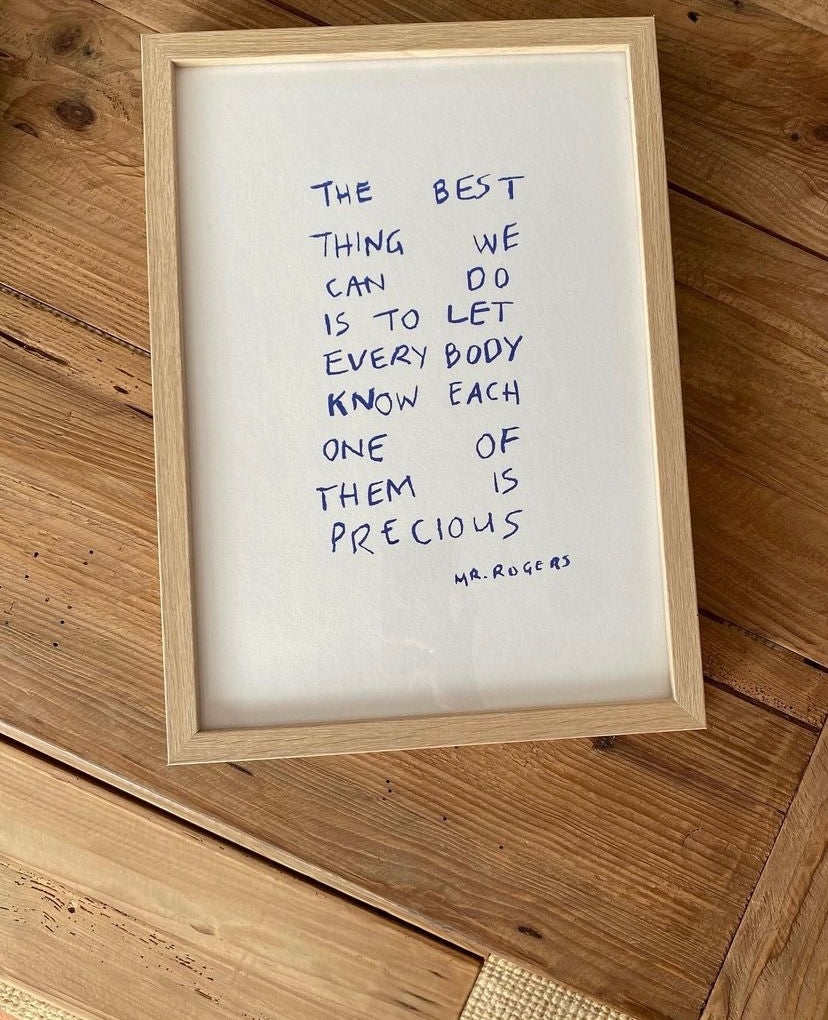 THE BEST
THING WE
CAN DO
IS TO LET
EVERY BODY
KNOW EACH
ONE OF
THEM IS
PRECIOUS
MR. ROGERS